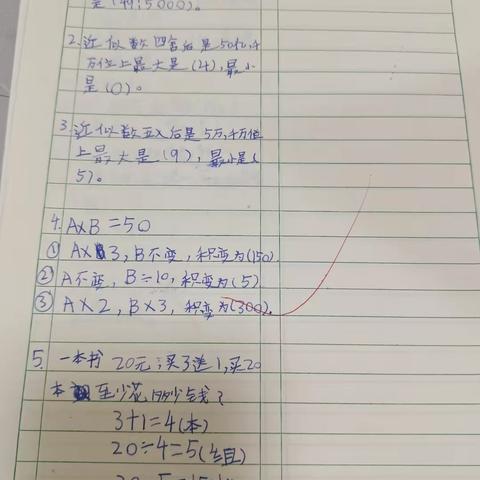 是(49;5000)。
2.近似数四舍后是50亿,千
万位上最大是(4),最小
是(0)。
3.近似数五入后是5万,千万位
上最大是(9),最小是(
5)。
4.A×B=50
①A×3,B不变,积变为(150)
②A不变,B÷10,积变为(5)
③A×2,B×3,积变为(300).
5.一本书20元,买3送1,买20
本至少花多少钱?
3+1=4(本)
20÷4=5(组)